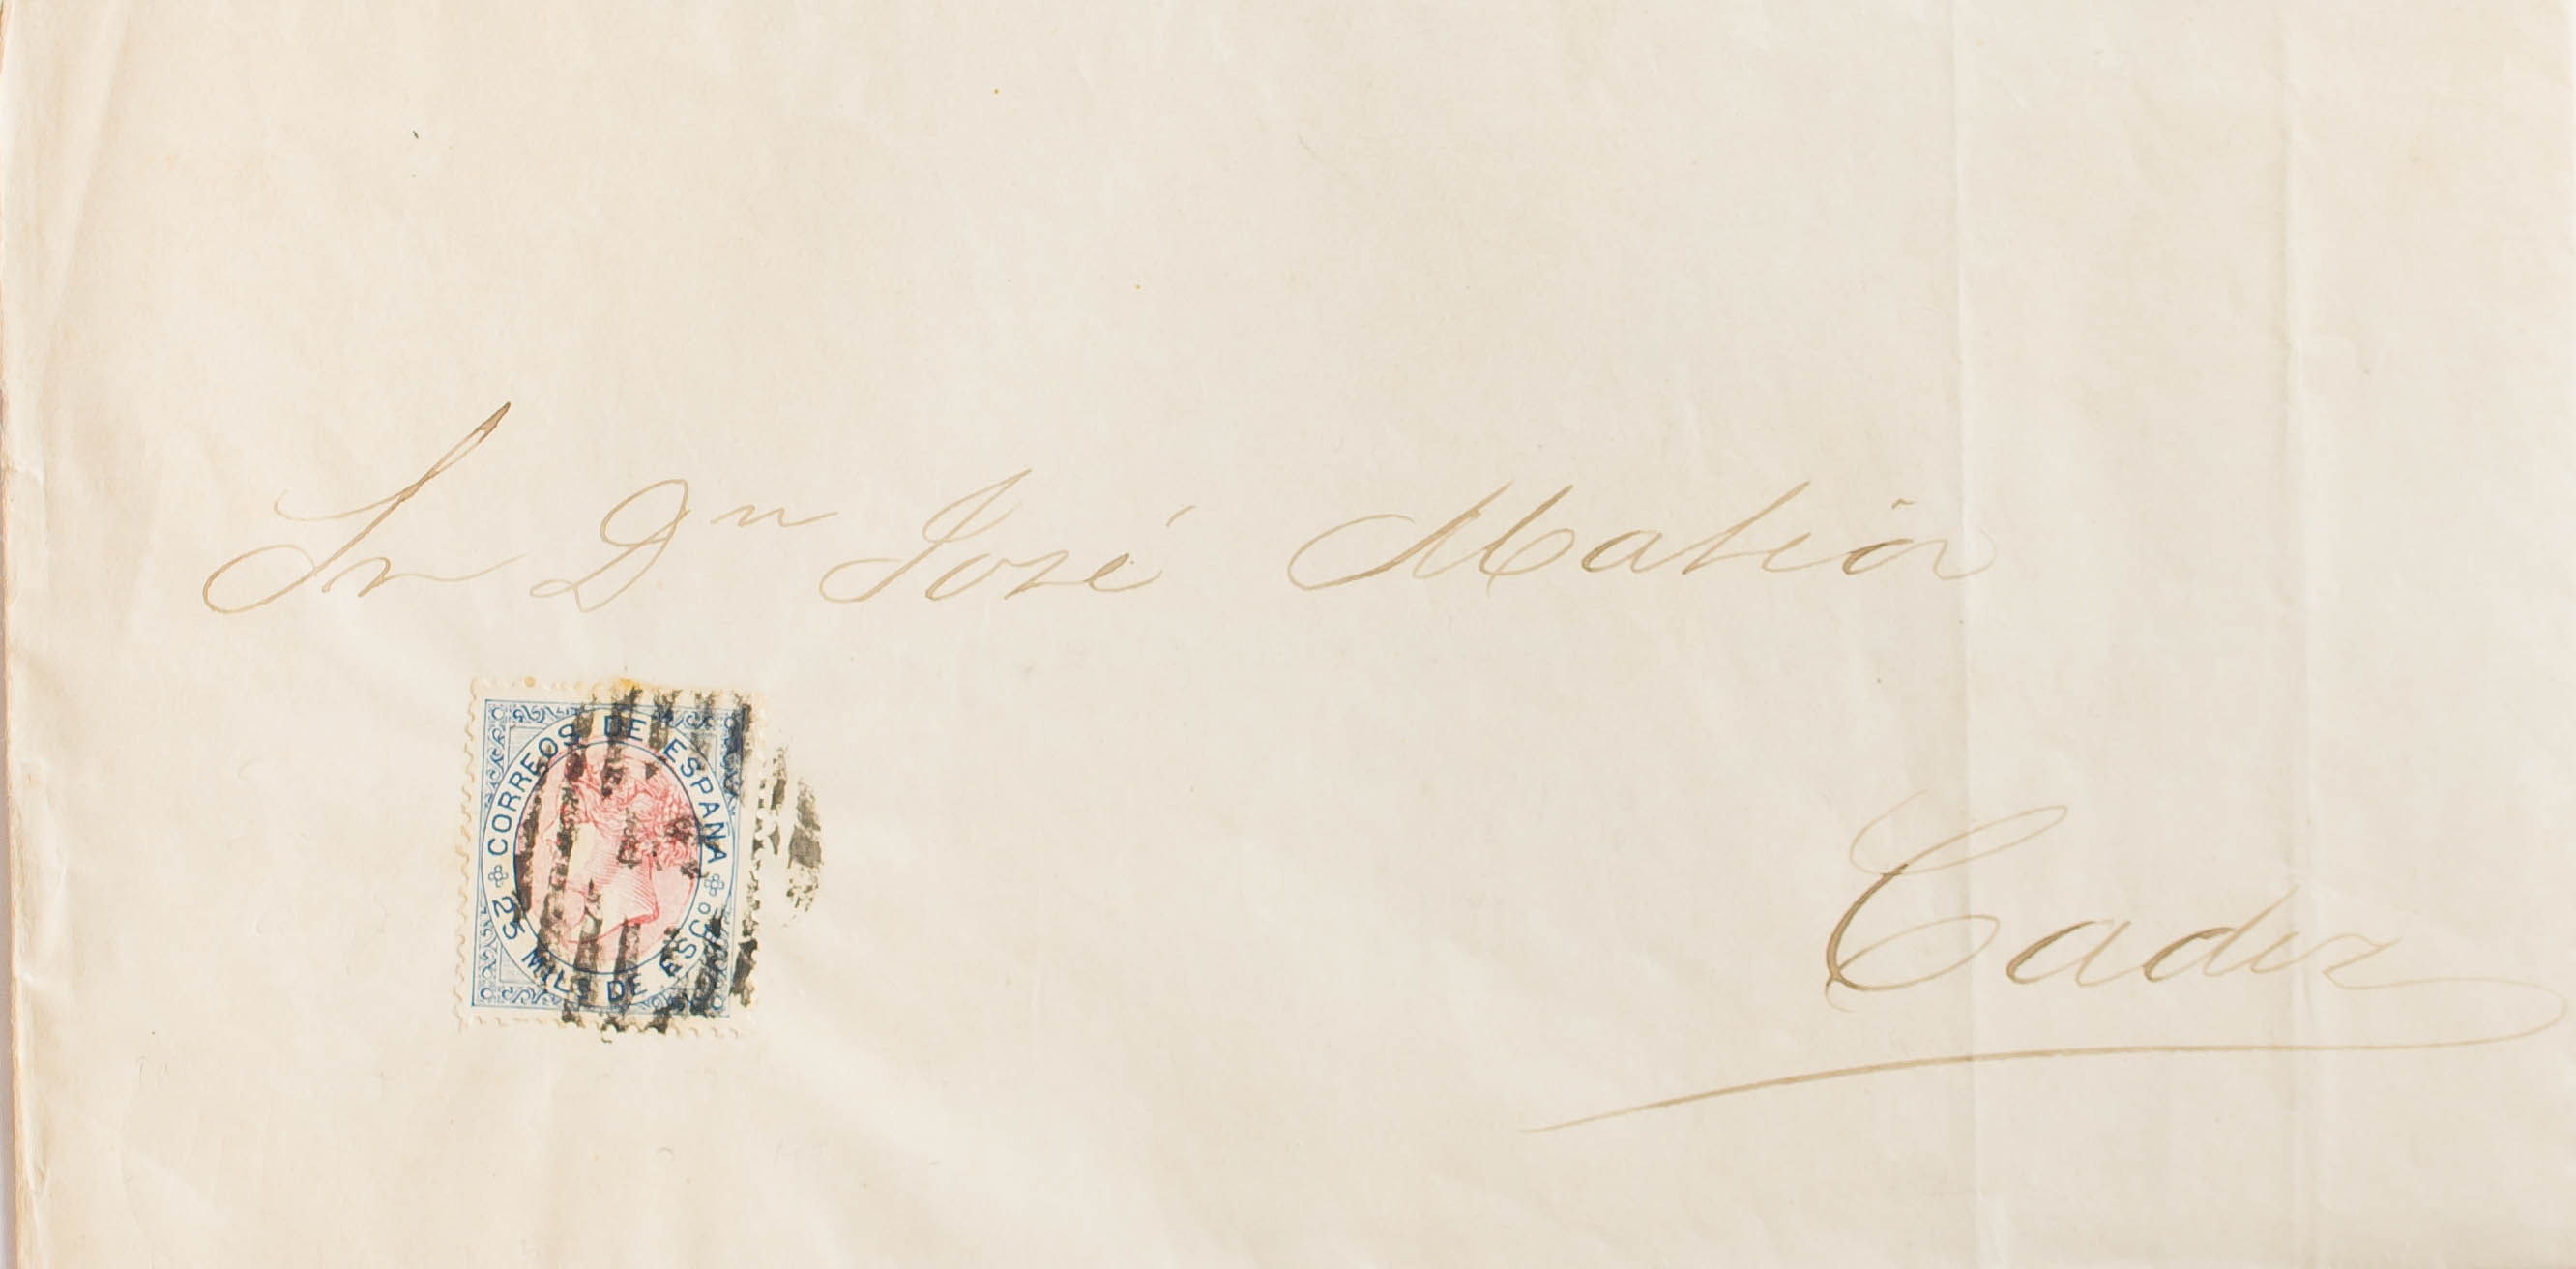 Sr Dn José Matia
CORREOS DE ESPAÑA
25 MILS DE ESCO
Cadiz